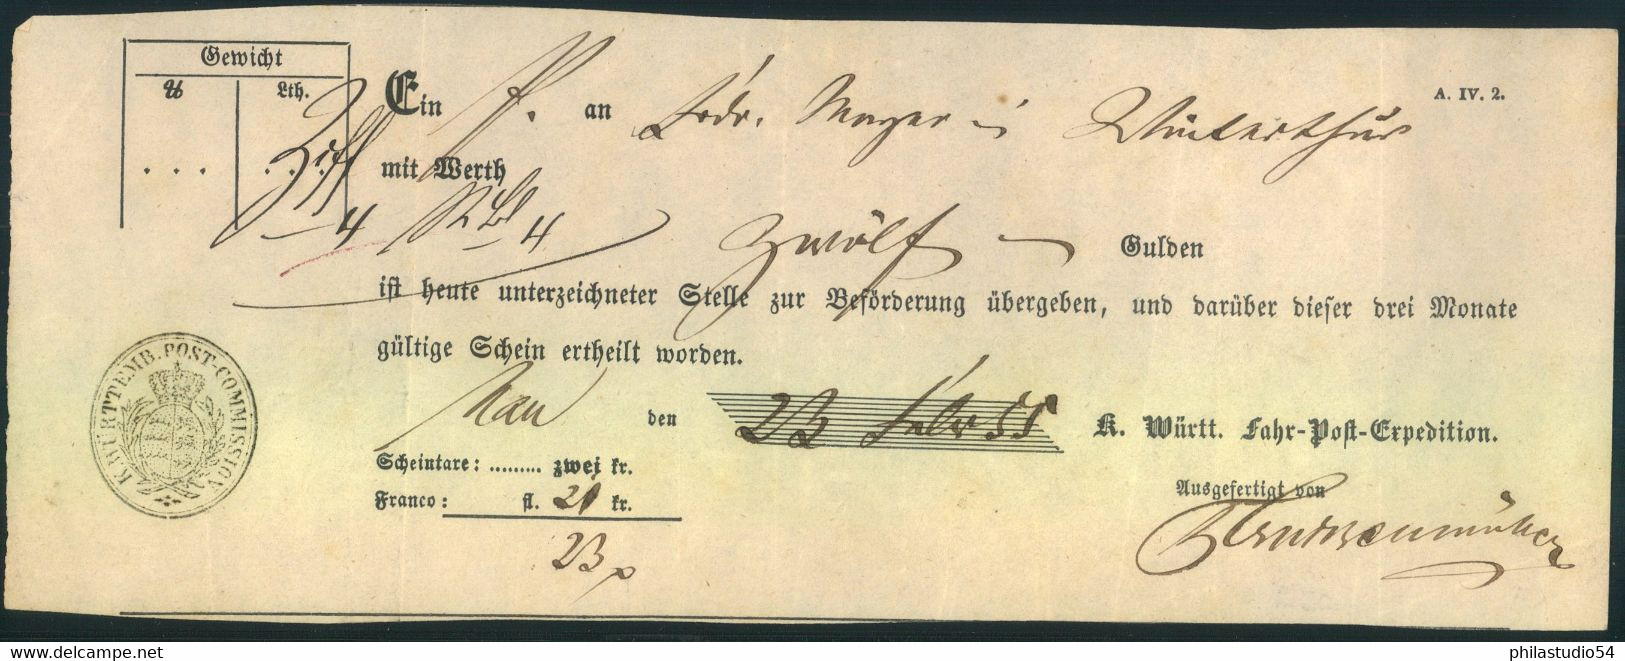 Gewicht
℔ Lth.
A. IV. 2.
Ein P. an Frdr. Mayer in Winterthur
mit Werth
4 4 Zwölf Gulden
ist heute unterzeichneter Stelle zur Beförderung übergeben, und darüber dieser drei Monate
gültige Schein ertheilt worden.
K. WÜRTTEMB. POST-COMMISSION
den 23 Febr 55 K. Württ. Fahr-Post-Expedition.
Scheintaxe: ......... zwei kr.
Franco: fl. 21 kr.
23
Ausgefertigt von
delcampe.net
philastudio54